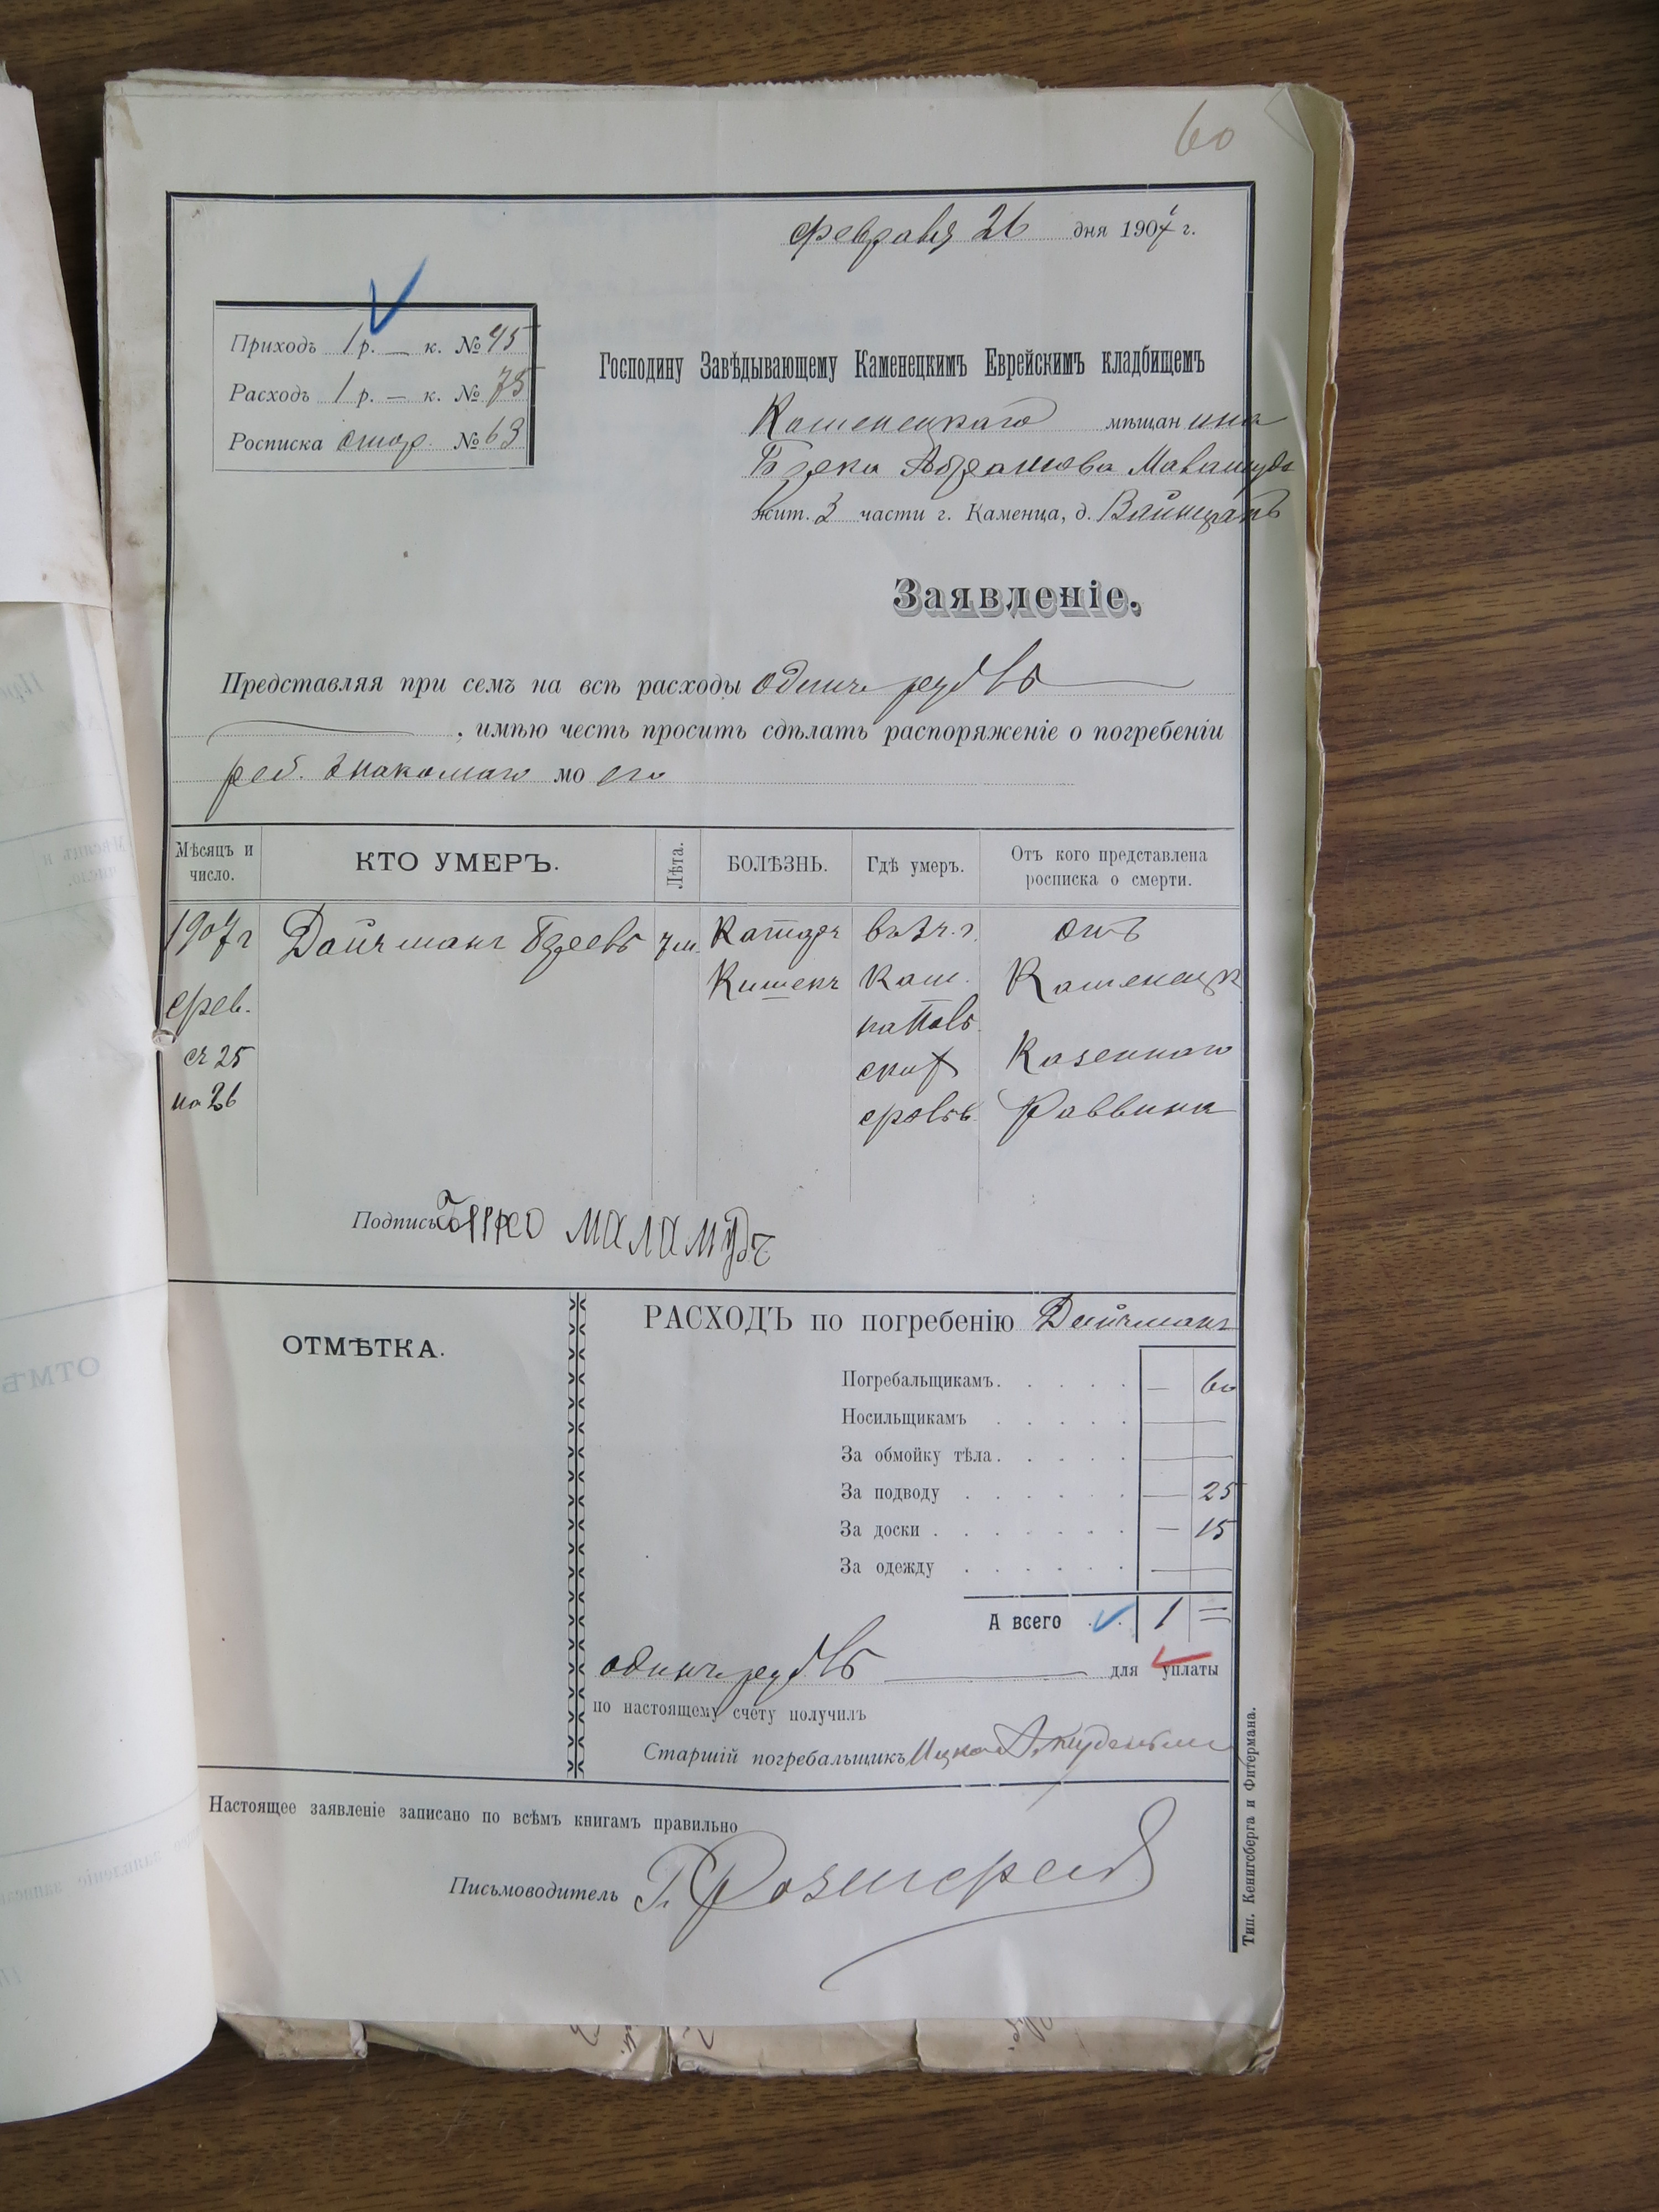 60
Февраля 26 дня 1907 г.
Приходъ 1 р. — к. № 45
Расходъ 1 р. — к. № 75
Росписка отор. № 63
Господину Завѣдывающему Каменецкимъ Еврейскимъ кладбищемъ
Каменецкаго мѣщанина
Абрамова Маламудъ
жит. 3 части г. Каменца, д.
Заявленіе.
Представляя при семъ на всѣ расходы одинъ рубль
, имѣю честь просить сдѣлать распоряженіе о погребеніи
реб. знакомаго моего
Мѣсяцъ и число. КТО УМЕРЪ. Лѣта. БОЛѢЗНЬ. Гдѣ умеръ. Отъ кого представлена росписка о смерти.
1907 г Дайчманъ 7 м. Катаръ въ 3 ч. г. отъ
фев. Кишекъ Кам. Каменецк
съ 25 на Поль Казеннаго
на 26 ских
фольв. Раввина
Подпись Маламудъ
ОТМѢТКА.
РАСХОДЪ по погребенію Дайчманъ
Погребальщикамъ. — 60
Носильщикамъ —
За обмойку тѣла. —
За подводу — 25
За доски — 15
За одежду —
А всего 1 =
одинъ рубль для уплаты
по настоящему счету получилъ
Старшій погребальщикъ Ицко
Настоящее заявленіе записано по всѣмъ книгамъ правильно
Письмоводитель Розенфельд
Тип. Кенигсберга и Фитермана.